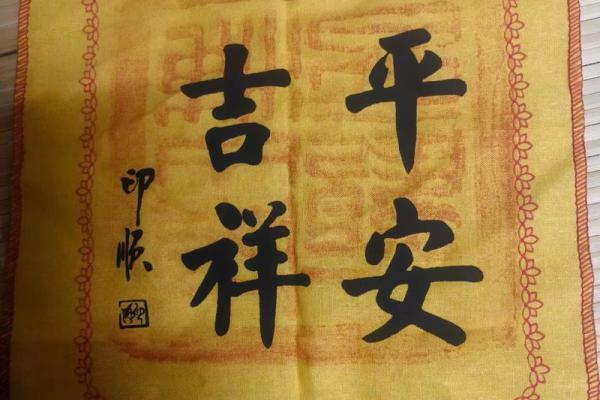 平安
吉祥
印順